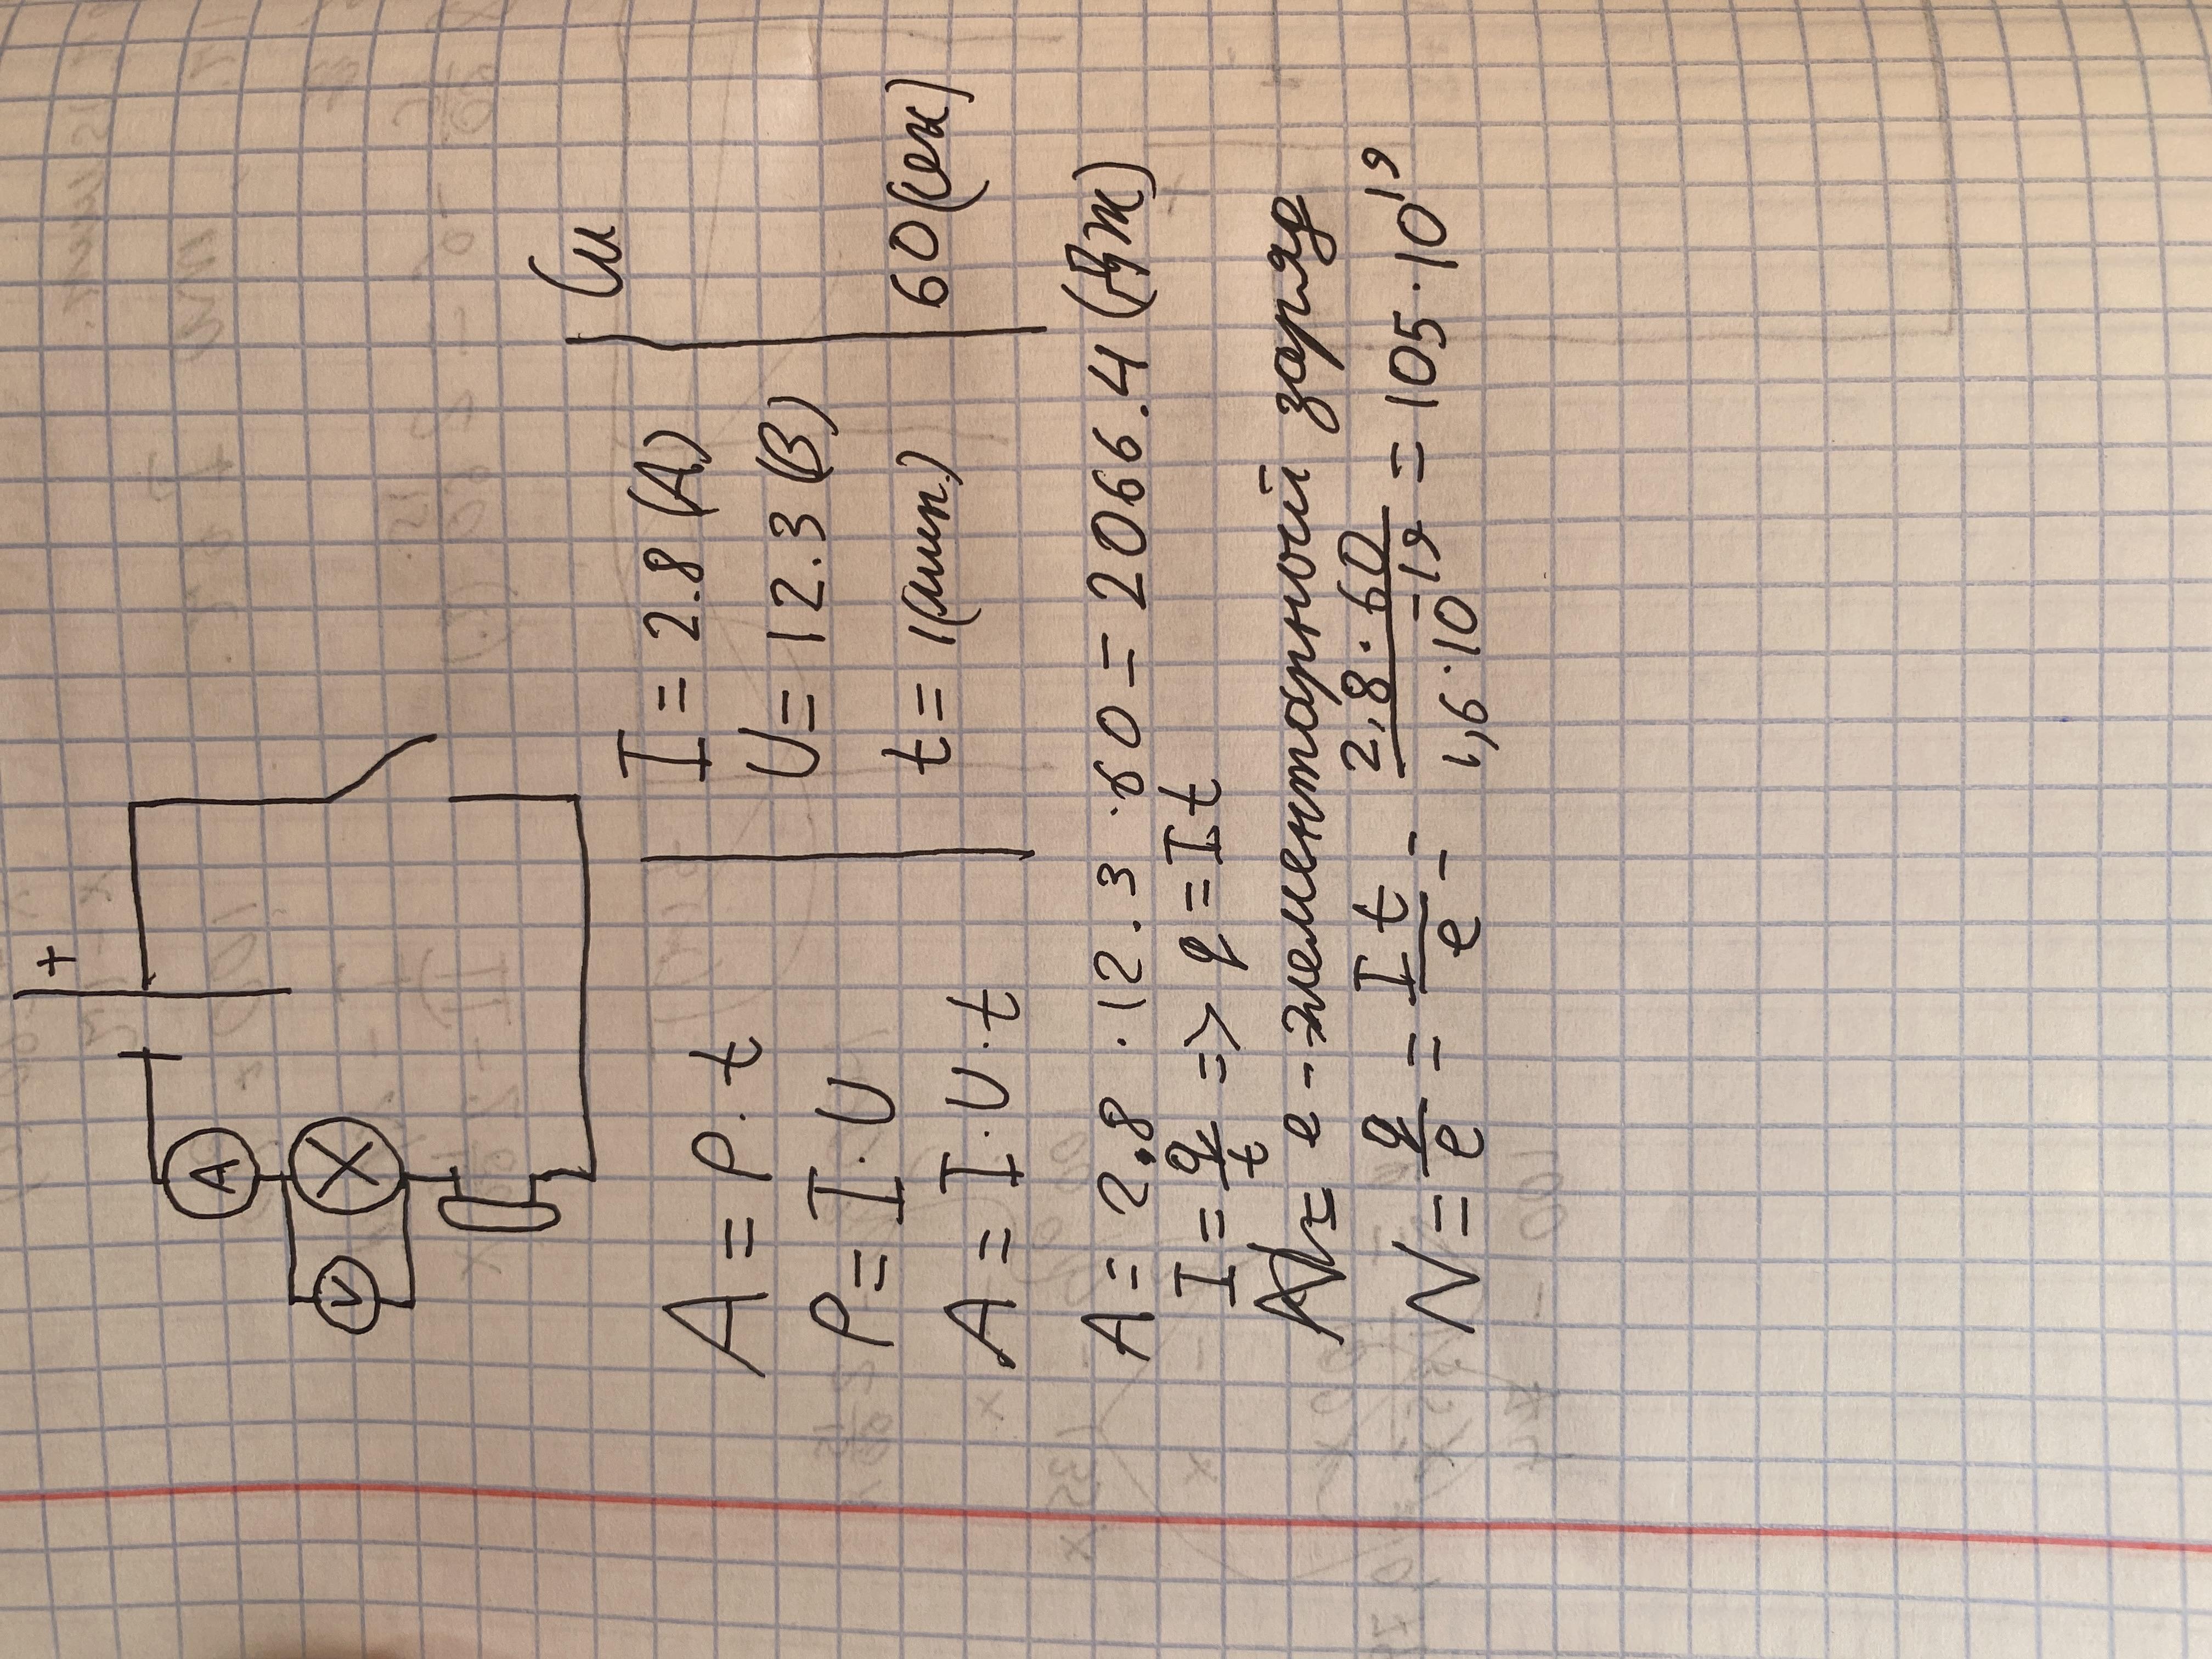 +
A
V
Си
I = 2.8 (А)
U = 12.3 (В)
t = 1(мин.) 60(сек)
A = P · t
P = I · U
A = I · U · t
A = 2.8 · 12.3 · 60 = 2066.4 (Дж)
I = q/t => q = It
N = e - элементарный заряд
N = q/e = It/e = 2,8·60/1,6·10^-19 = 105·10^19